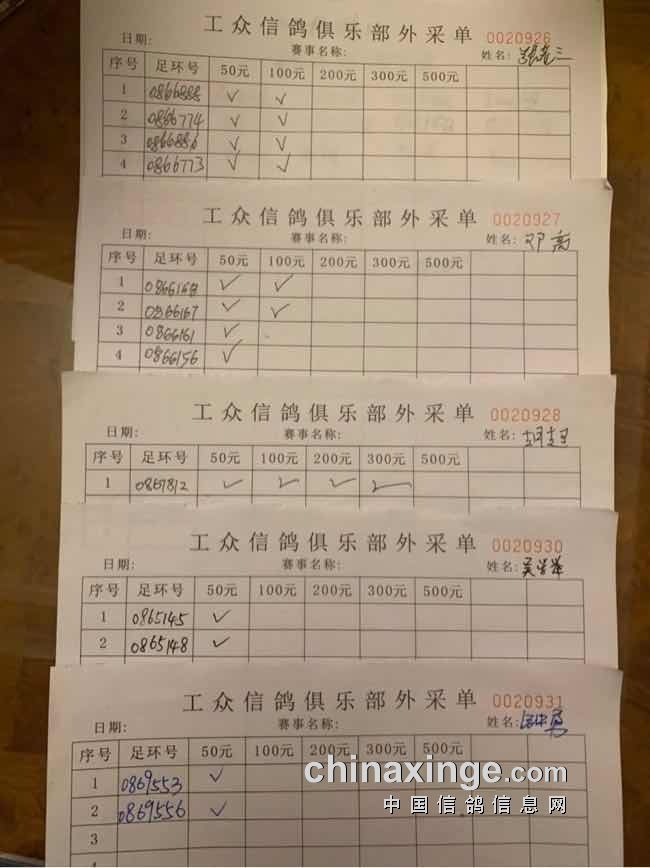 工众信鸽俱乐部外采单 0020926
日期: 赛事名称: 姓名:
序号 足环号 50元 100元 200元 300元 500元
1 0866888 ✓ ✓
2 0866774 ✓ ✓
3 0866886 ✓ ✓
4 0866773 ✓ ✓
工众信鸽俱乐部外采单 0020927
日期: 赛事名称: 姓名: 邓高
序号 足环号 50元 100元 200元 300元 500元
1 0866168 ✓ ✓
2 0866167 ✓ ✓
3 0866161 ✓
4 0866156 ✓
工众信鸽俱乐部外采单 0020928
日期: 赛事名称: 姓名:
序号 足环号 50元 100元 200元 300元 500元
1 0867812 ✓ ✓ ✓ ✓
工众信鸽俱乐部外采单 0020930
日期: 赛事名称: 姓名:
序号 足环号 50元 100元 200元 300元 500元
1 0865145 ✓
2 0865148 ✓
工众信鸽俱乐部外采单 0020931
日期: 赛事名称: 姓名:
序号 足环号 50元 100元 200元 300元 500元
1 0869553 ✓
2 0869556 ✓
3
4
chinaxinge.com
中国信鸽信息网